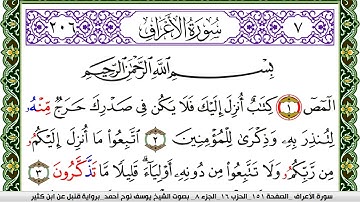 ٧ سُورَةُ الْأَعْرَافِ ٢٠٦
بِسْمِ اللَّهِ الرَّحْمَٰنِ الرَّحِيمِ
الٓمٓصٓ ١ كِتَٰبٌ أُنزِلَ إِلَيْكَ فَلَا يَكُن فِى صَدْرِكَ حَرَجٌ مِّنْهُۥ
لِتُنذِرَ بِهِۦ وَذِكْرَىٰ لِلْمُؤْمِنِينَ ٢ ٱتَّبِعُوا۟ مَآ أُنزِلَ إِلَيْكُمُۥ
مِن رَّبِّكُمُۥ وَلَا تَتَّبِعُوا۟ مِن دُونِهِۦٓ أَوْلِيَآءَ قَلِيلًا مَّا تَذَّكَّرُونَ ٣
سورة الأعراف _الصفحة ١٥١ _الحزب ١٦ _الجزء ٨ _ بصوت الشيخ يوسف نوح أحمد برواية قنبل عن ابن كثير